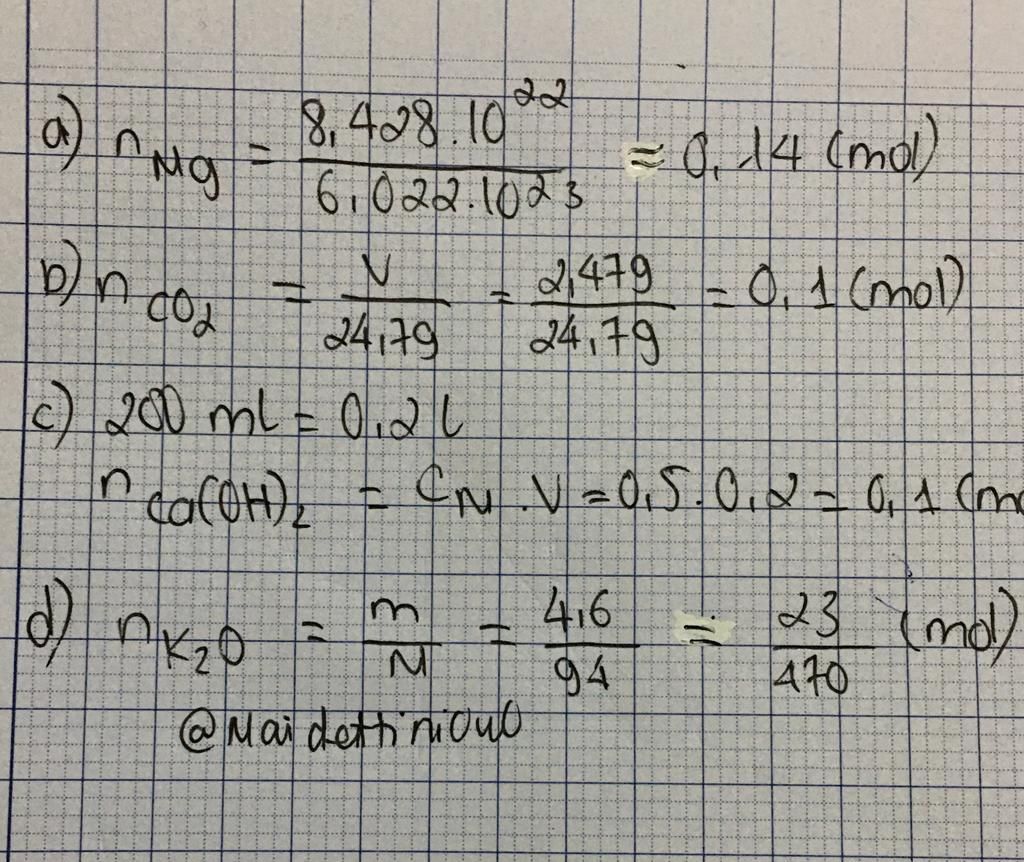 a) n Mg = 8,428.10^22 / 6,022.10^23 = 0,14 (mol)
b) n CO2 = V / 24,79 = 2,479 / 24,79 = 0,1 (mol)
c) 200 ml = 0,2 l
n Ca(OH)2 = CM . V = 0,5. 0,2 = 0,1 (mo
d) n K2O = m / M = 4,6 / 94 = 23 / 470 (mol)